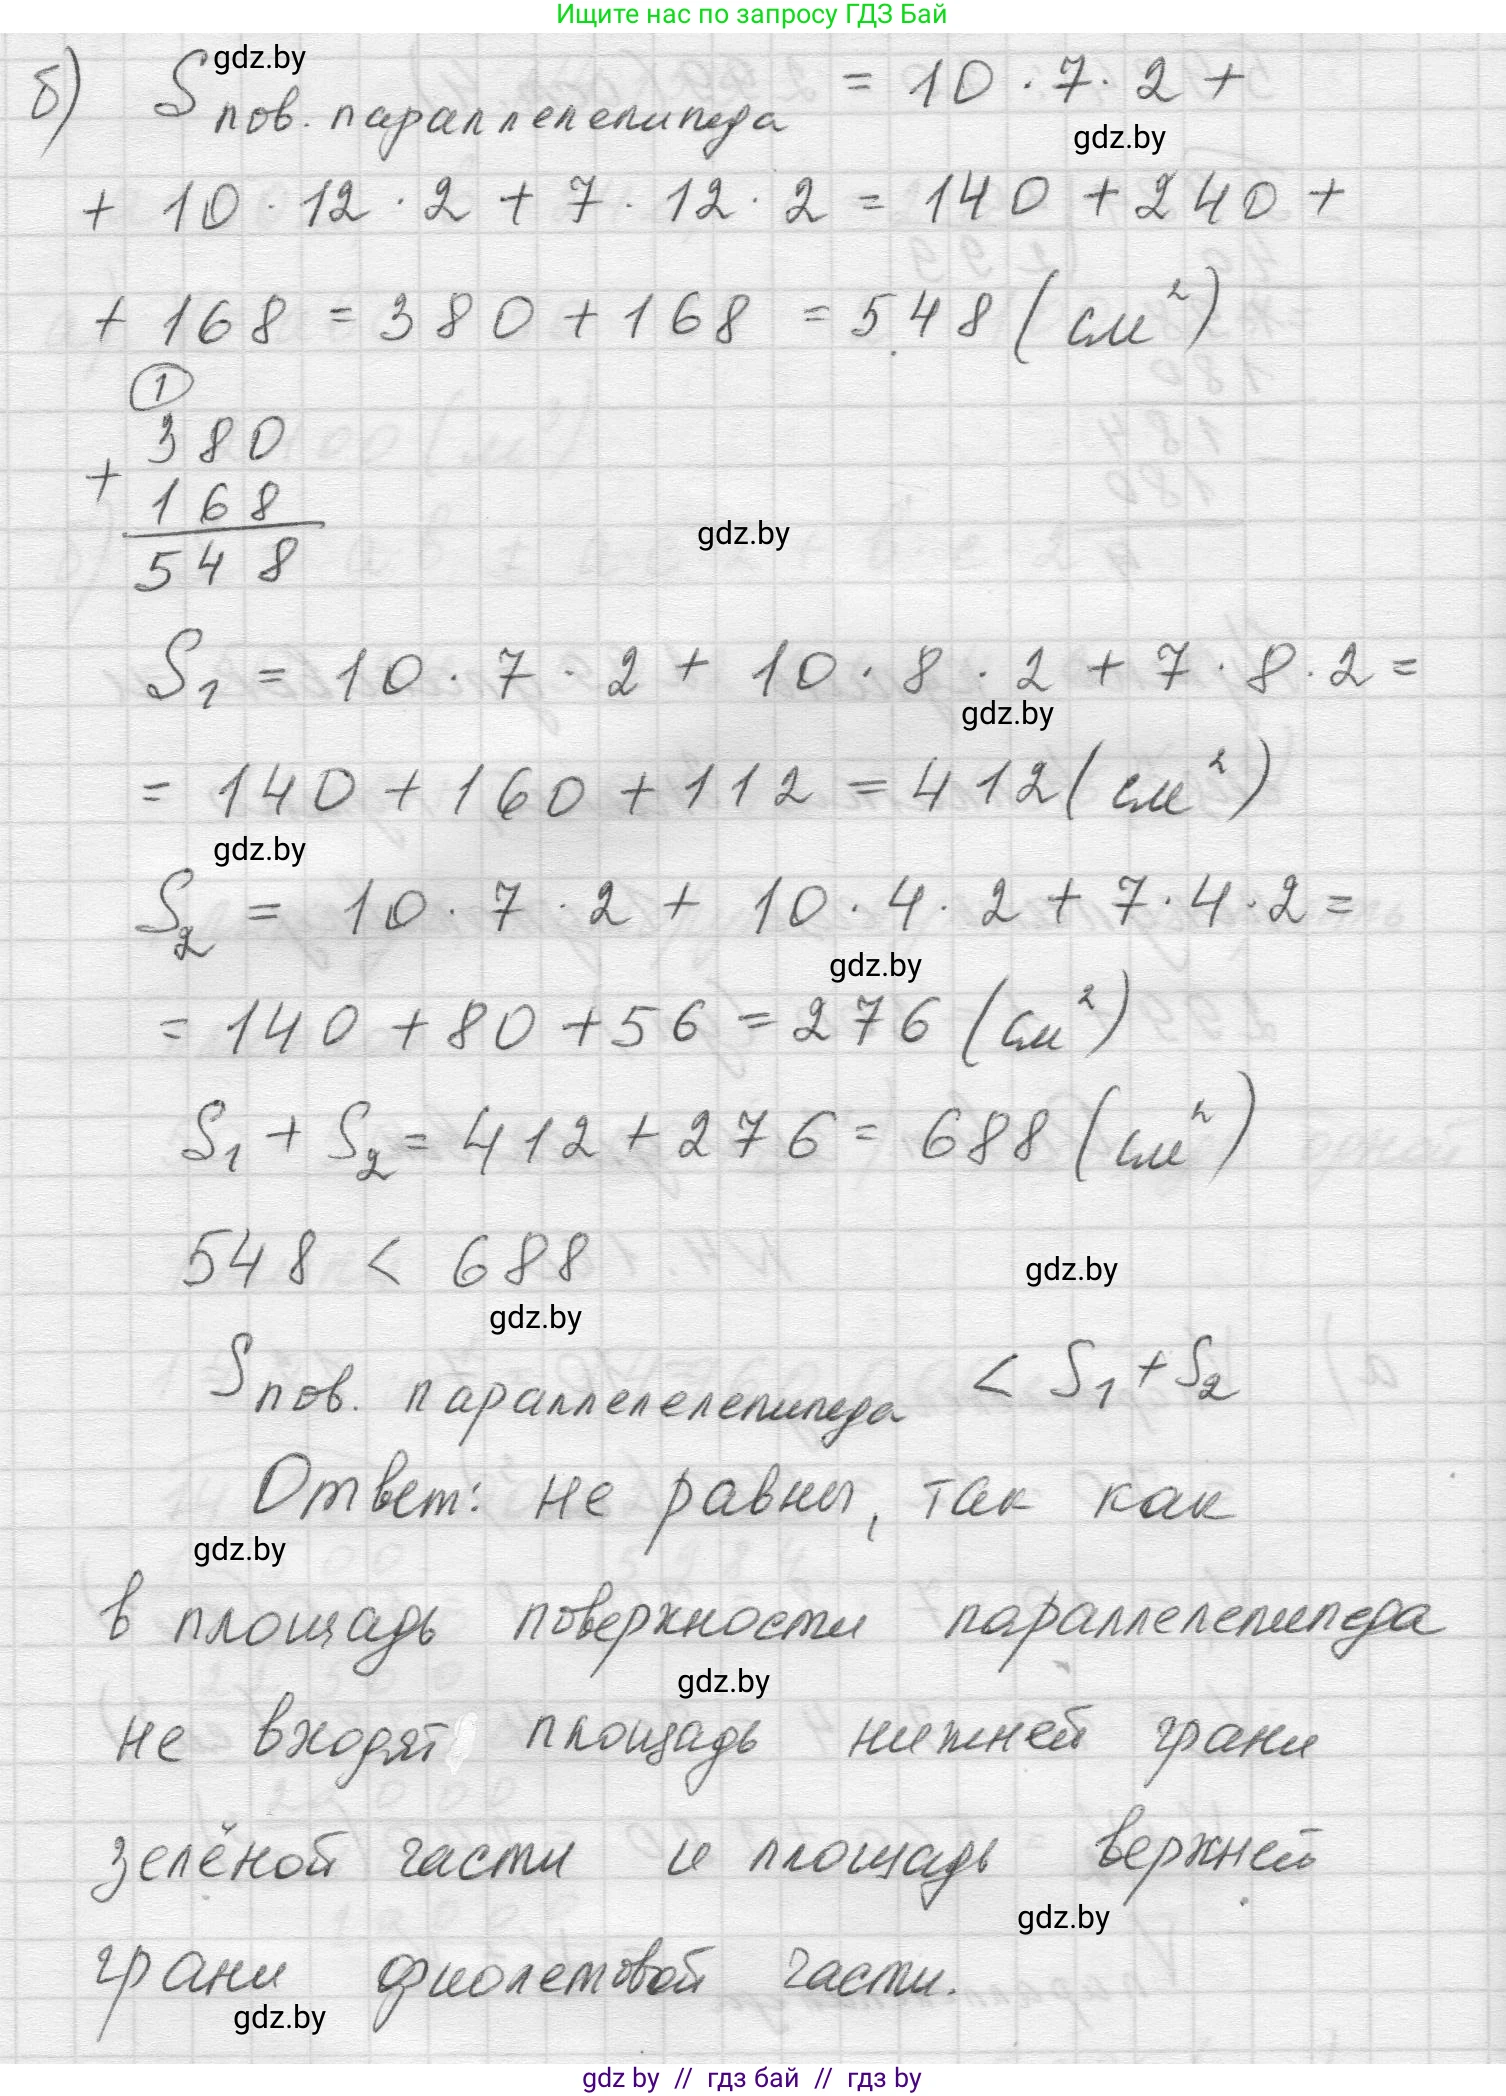 Ищите нас по запросу ГДЗ Бай
б) S пов. параллелепипеда = 10 · 7 · 2 +
gdz.by
gdz.by
+ 10 · 12 · 2 + 7 · 12 · 2 = 140 + 240 +
+ 168 = 380 + 168 = 548 (см²)
1
380
+
168
548
gdz.by
S₁ = 10 · 7 · 2 + 10 · 8 · 2 + 7 · 8 · 2 =
gdz.by
= 140 + 160 + 112 = 412 (см²)
gdz.by
S₂ = 10 · 7 · 2 + 10 · 4 · 2 + 7 · 4 · 2 =
gdz.by
= 140 + 80 + 56 = 276 (см²)
S₁ + S₂ = 412 + 276 = 688 (см²)
548 < 688
gdz.by
gdz.by
S пов. параллелелепипеда < S₁ + S₂
Ответ: не равны, так как
gdz.by
в площадь поверхности параллелепипеда
gdz.by
не входят площадь нижней грани
зелёной части и площадь верхней
gdz.by
грани фиолетовой части.
gdz.by
gdz by // гдз бай // гдз by